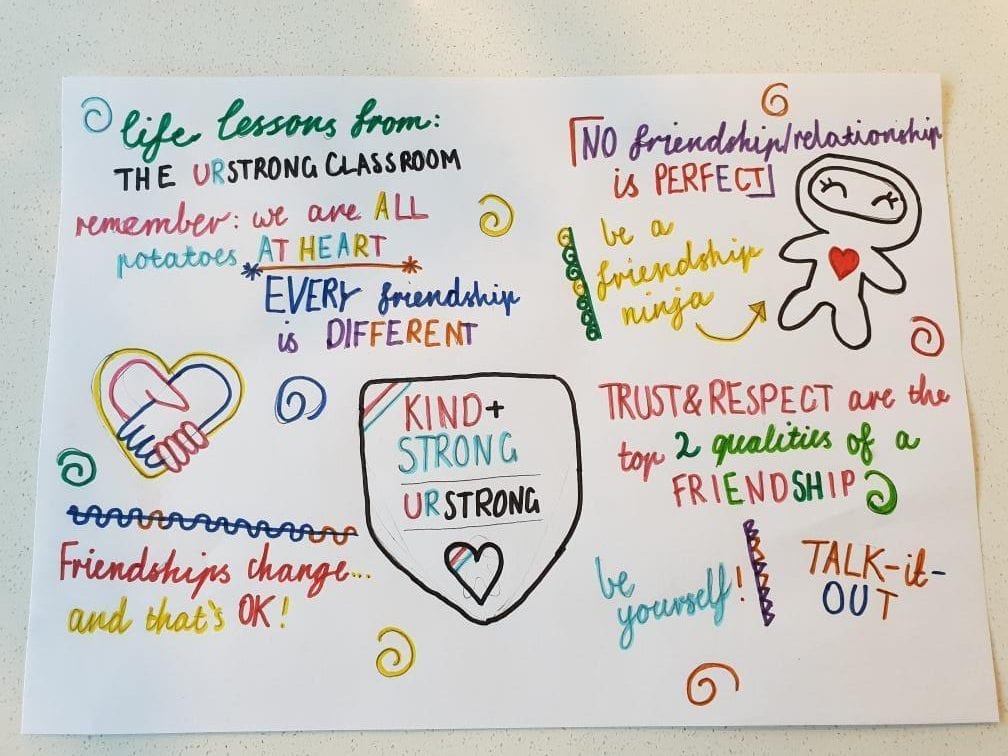 life lessons from:
THE URSTRONG CLASSROOM
remember: we are ALL
potatoes AT HEART
EVERY friendship
is DIFFERENT
NO friendship/relationship
is PERFECT
be a
friendship
ninja
KIND+
STRONG
URSTRONG
TRUST&RESPECT are the
top 2 qualities of a
FRIENDSHIP
Friendships change...
and that's OK!
be
yourself!
TALK-it-
OUT